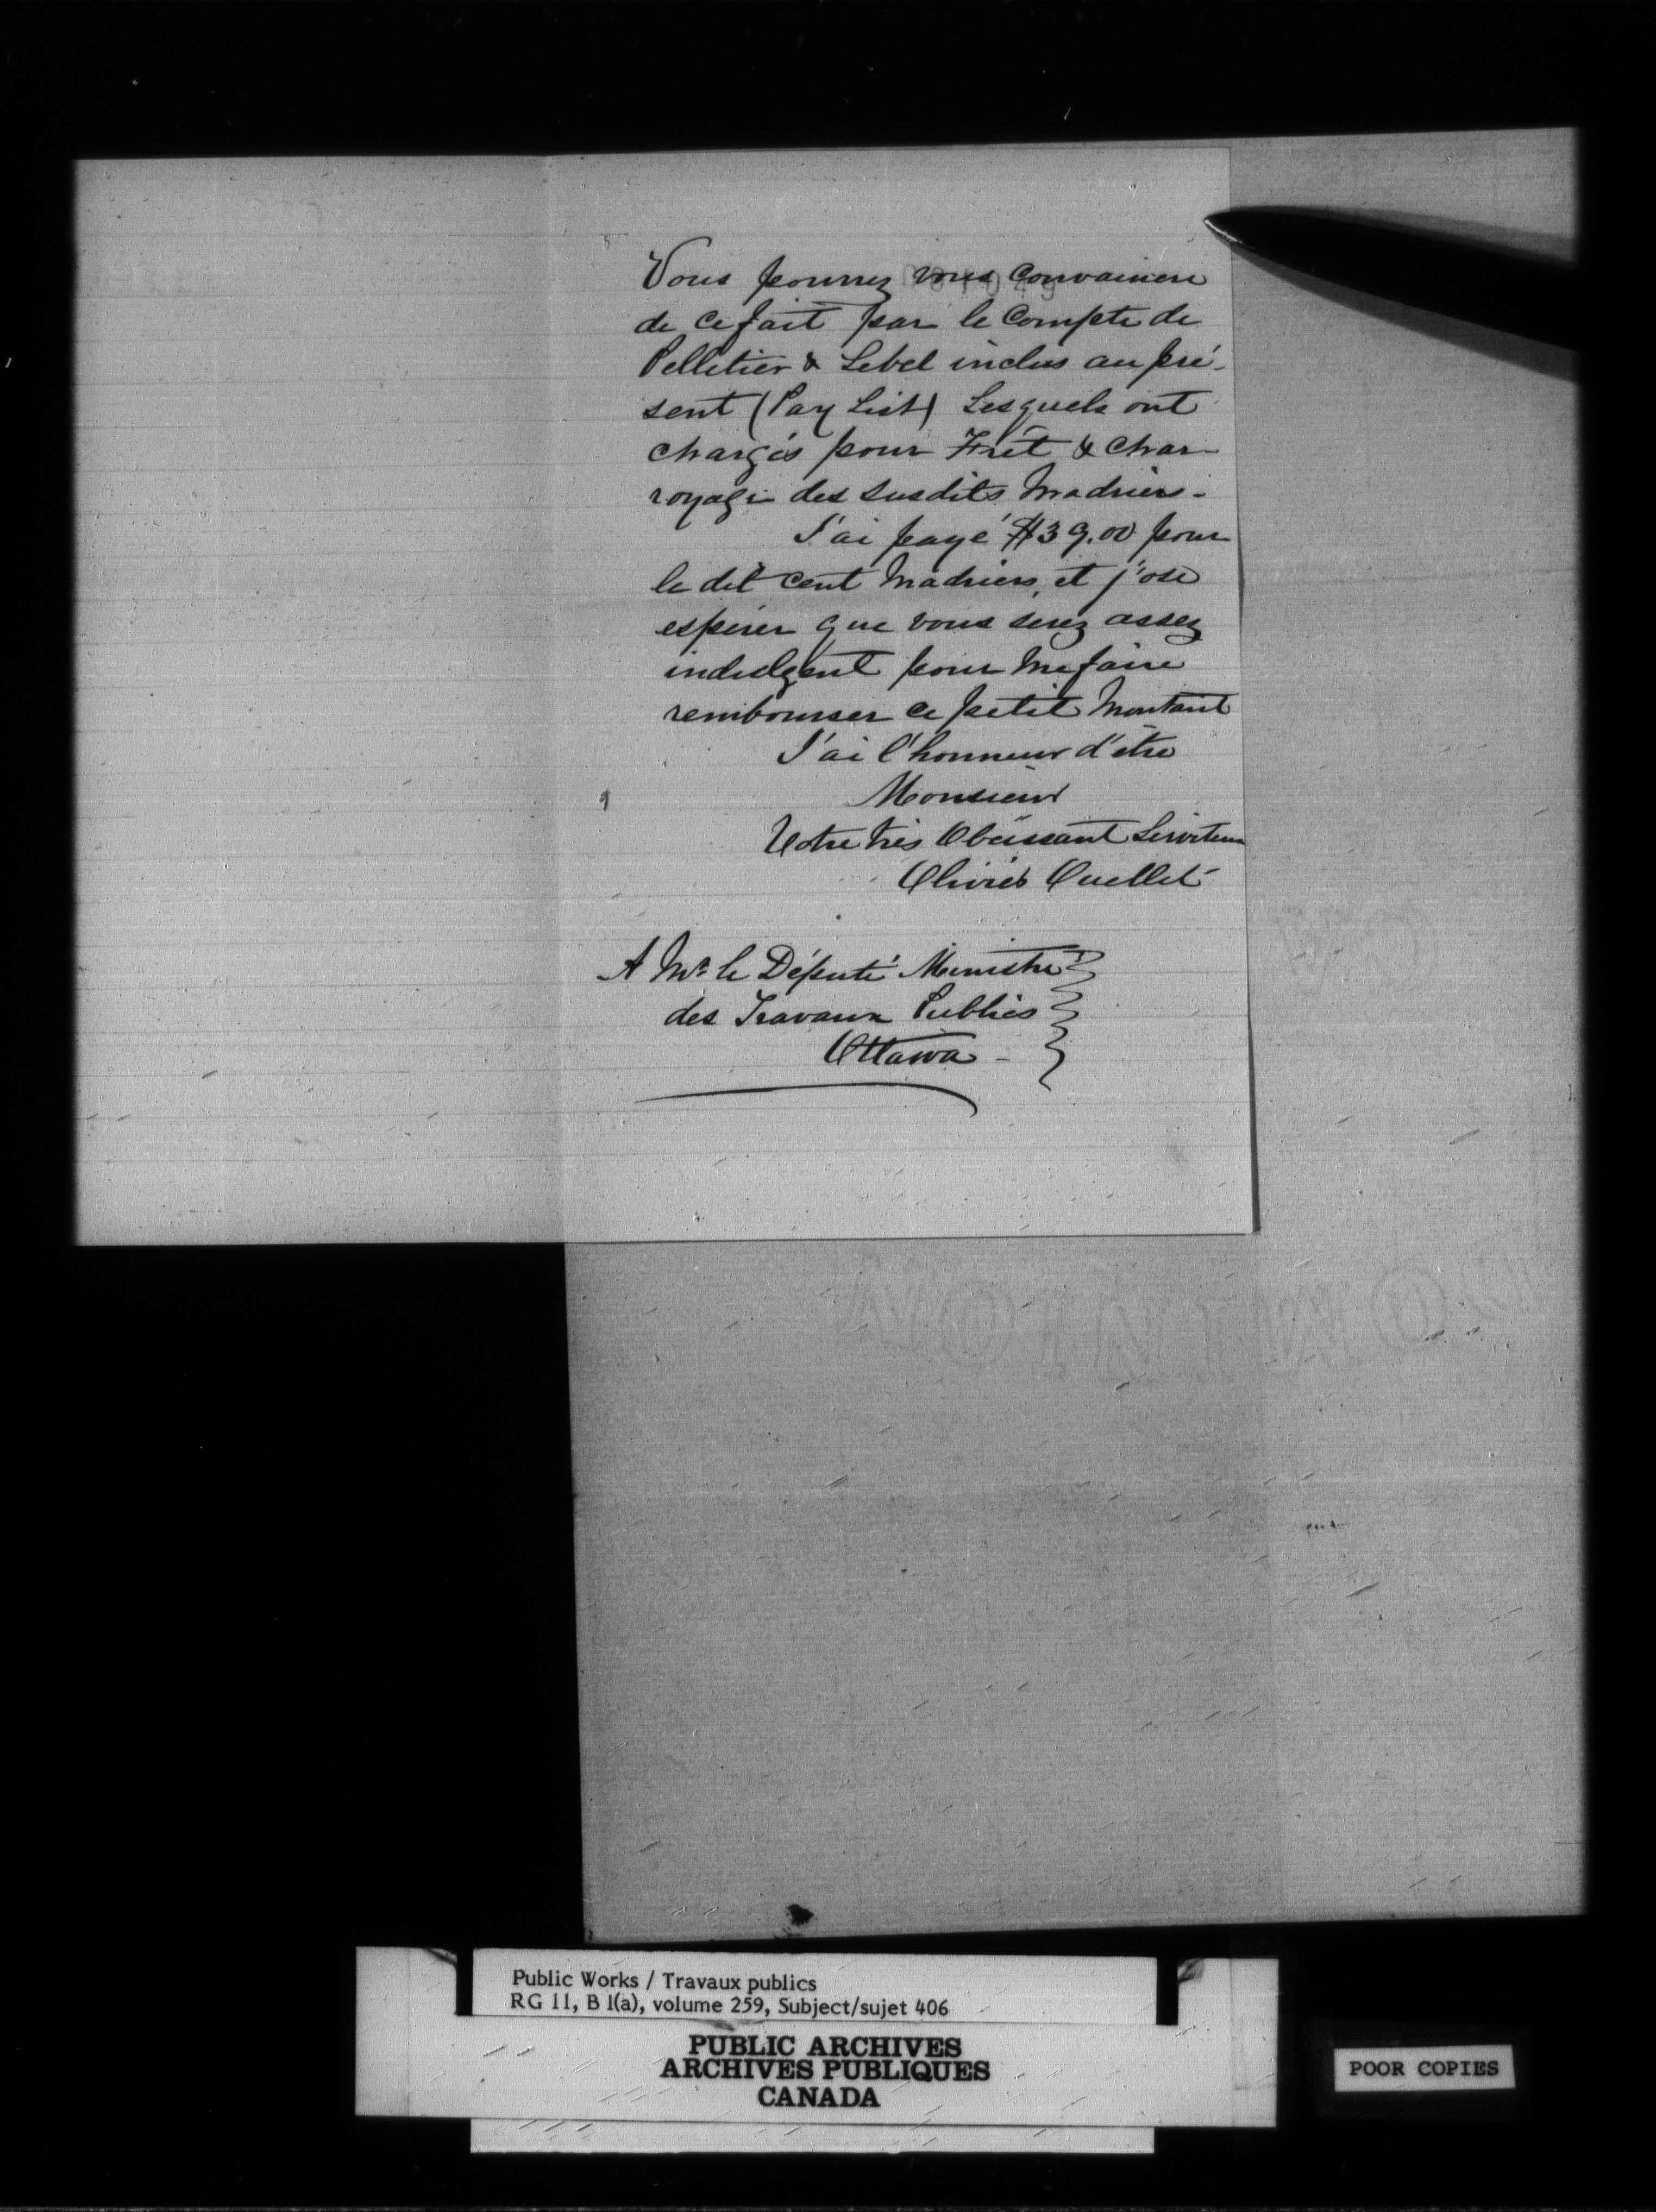 Vous pourrez vous convaincre
de ce fait par le compte de
Pelletier & Lebel inclus au pré-
sent (Pay List) Lesquels ont
chargés pour Frêt & Char-
royage des susdits Madriers -
J'ai payé $39.00 pour
le dit cent Madriers, et j'ose
espérer que vous serez assez
indulgent pour me faire
rembourser ce petit Montant
J'ai l'honneur d'être
Monsieur
Votre très Obéissant Serviteur
Olivier Ouellet
A Mr. le Député Ministre
des Travaux Publics
Ottawa -
Public Works / Travaux publics
RG 11, B 1(a), volume 259, Subject/sujet 406
PUBLIC ARCHIVES
ARCHIVES PUBLIQUES
CANADA
POOR COPIES